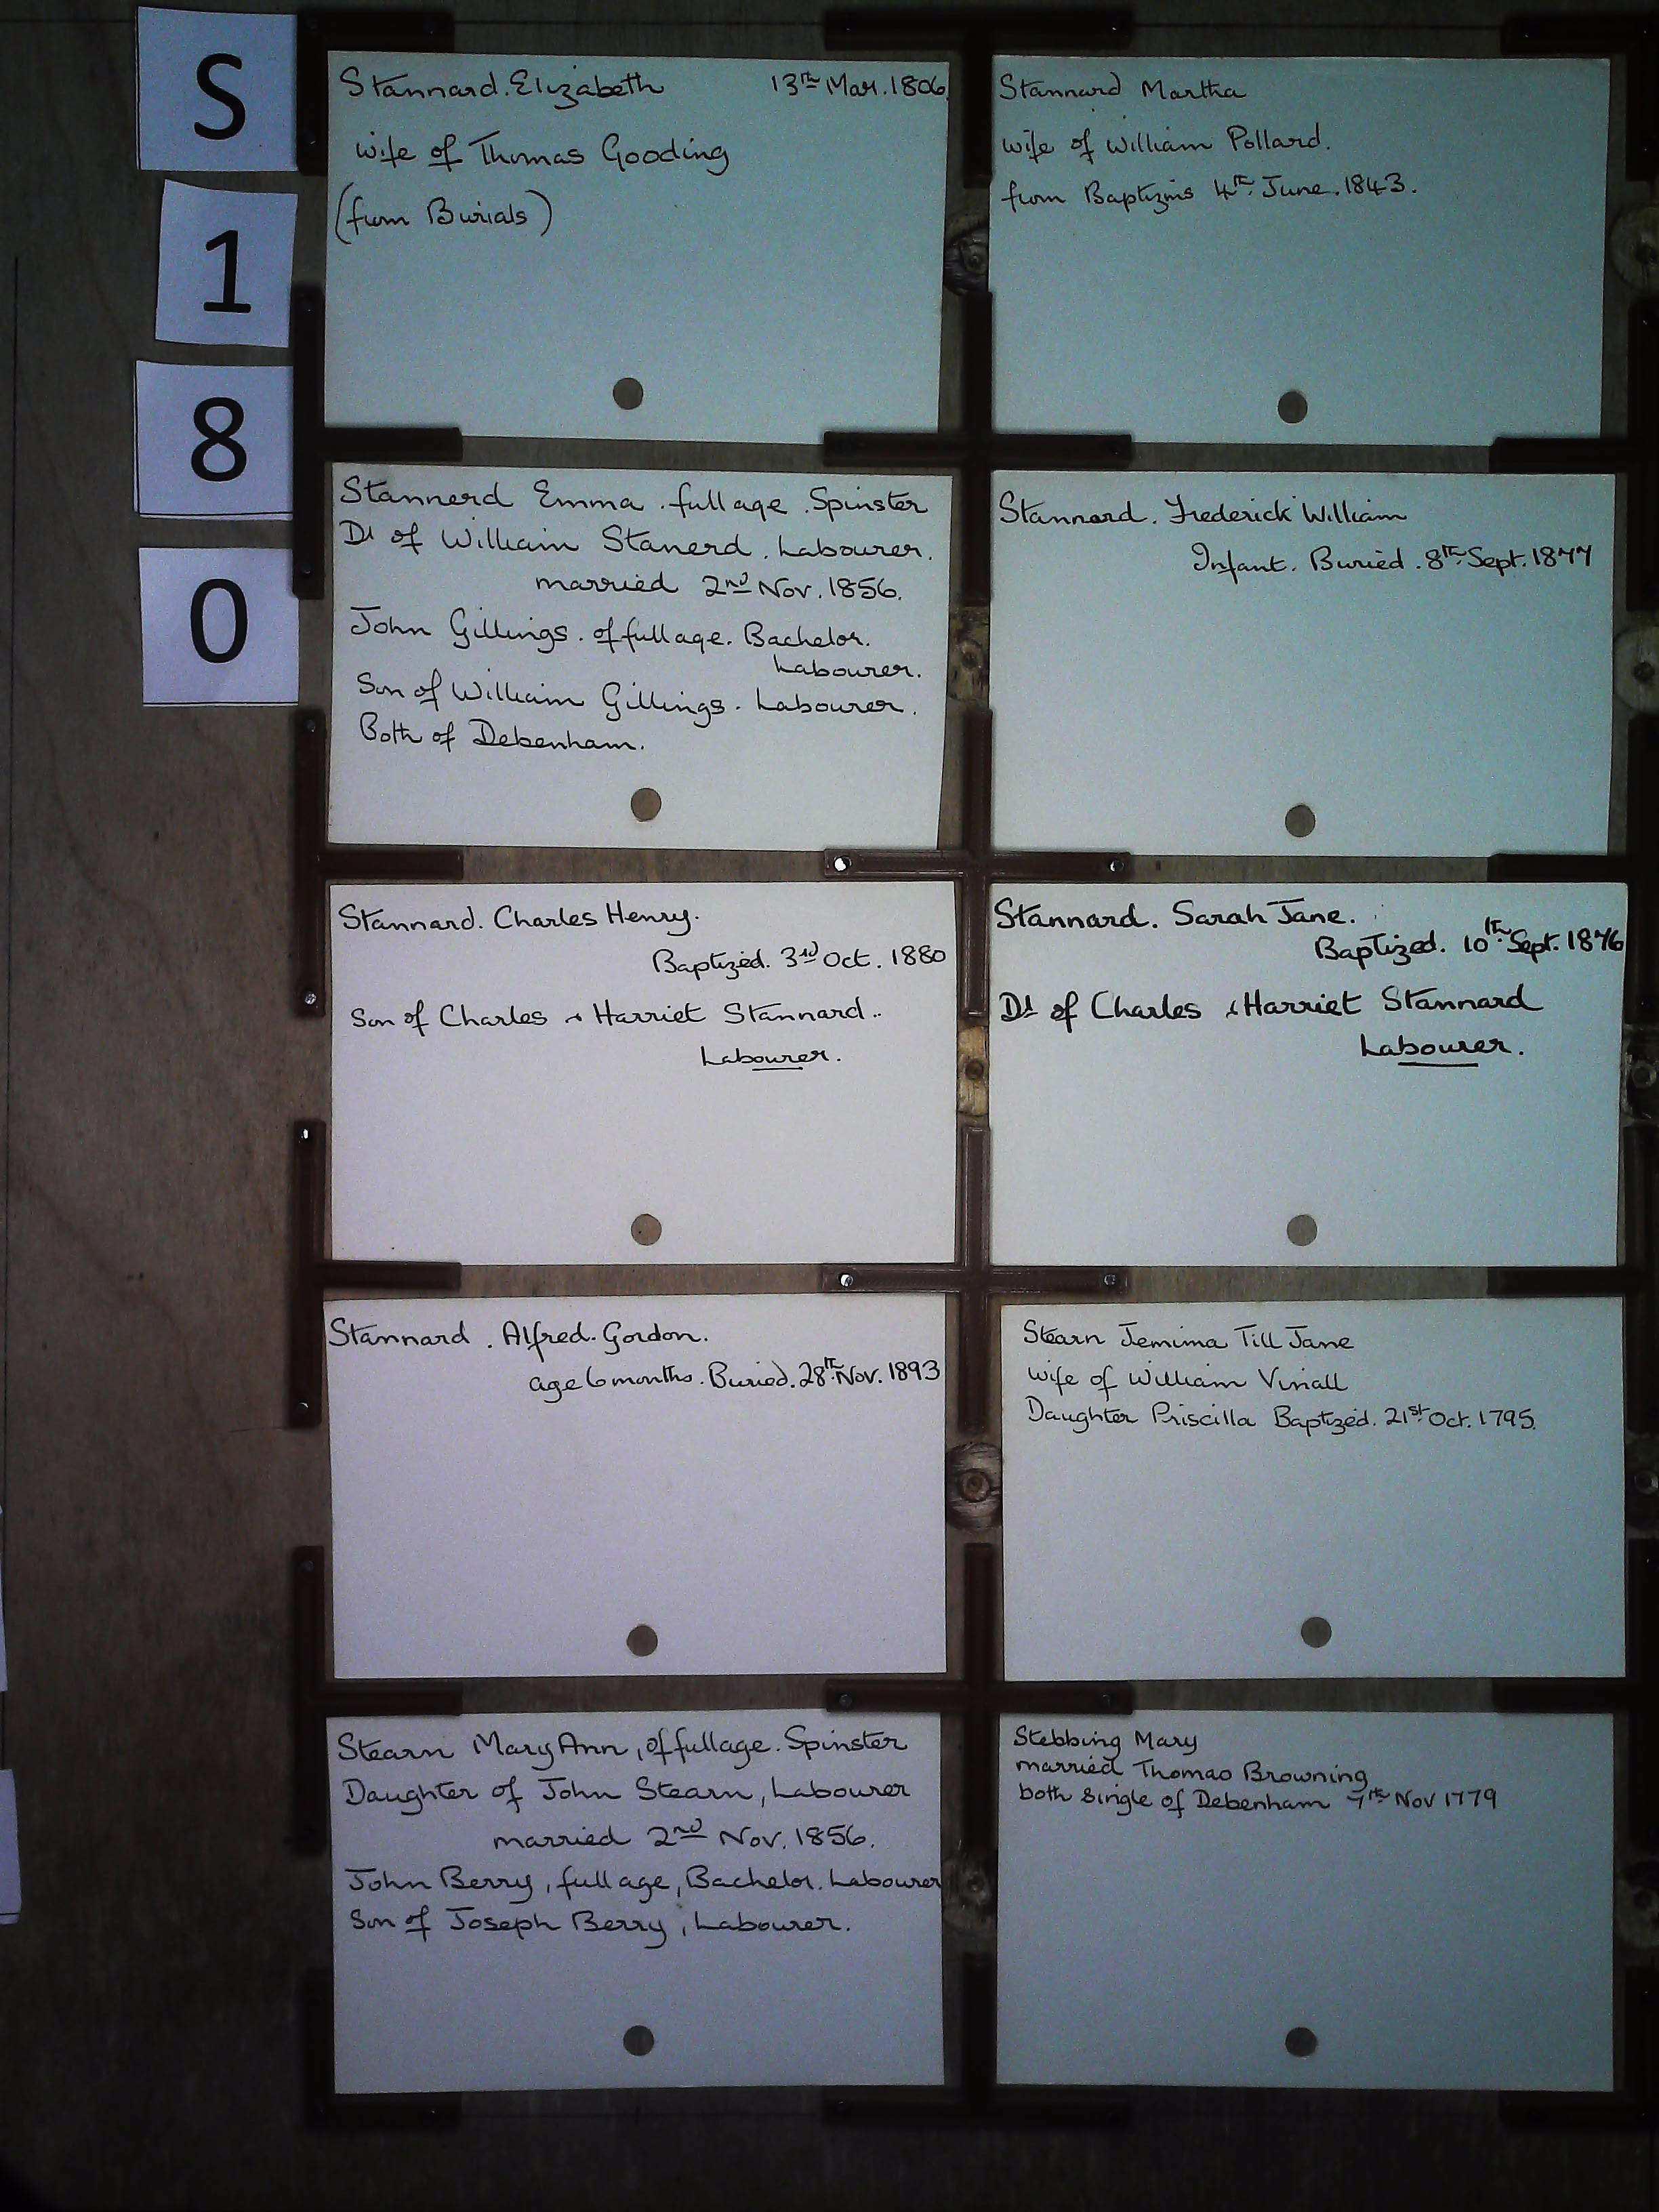 S
1
8
0
Stannard. Elizabeth 13th Mar. 1806.
wife of Thomas Gooding
(from Burials)
Stannard Martha
wife of William Pollard.
from Baptizms 4th June. 1843.
Stannerd Emma. full age. Spinster
Dt of William Stanerd. Labourer.
married 2nd Nov. 1856.
John Gillings. of full age. Bachelor.
Labourer.
Son of William Gillings. Labourer.
Both of Debenham.
Stannard. Frederick William
Infant. Buried. 8th Sept. 1877
Stannard. Charles Henry.
Baptized. 3rd Oct. 1880
Son of Charles & Harriet Stannard..
Labourer.
Stannard. Sarah Jane.
Baptized. 10th Sept. 1876
Dt of Charles & Harriet Stannard
Labourer.
Stannard. Alfred. Gordon.
age 6 months. Buried. 28th Nov. 1893
Stearn Jemima Till Jane
wife of William
Daughter Priscilla Baptized. 21st Oct. 1795.
Stearn Mary Ann, of full age. Spinster
Daughter of John Stearn, Labourer
married 2nd Nov. 1856.
John Berry, full age, Bachelor. Labourer
Son of Joseph Berry, Labourer.
Stebbing Mary
married Thomas Browning
both single of Debenham 7th Nov 1779